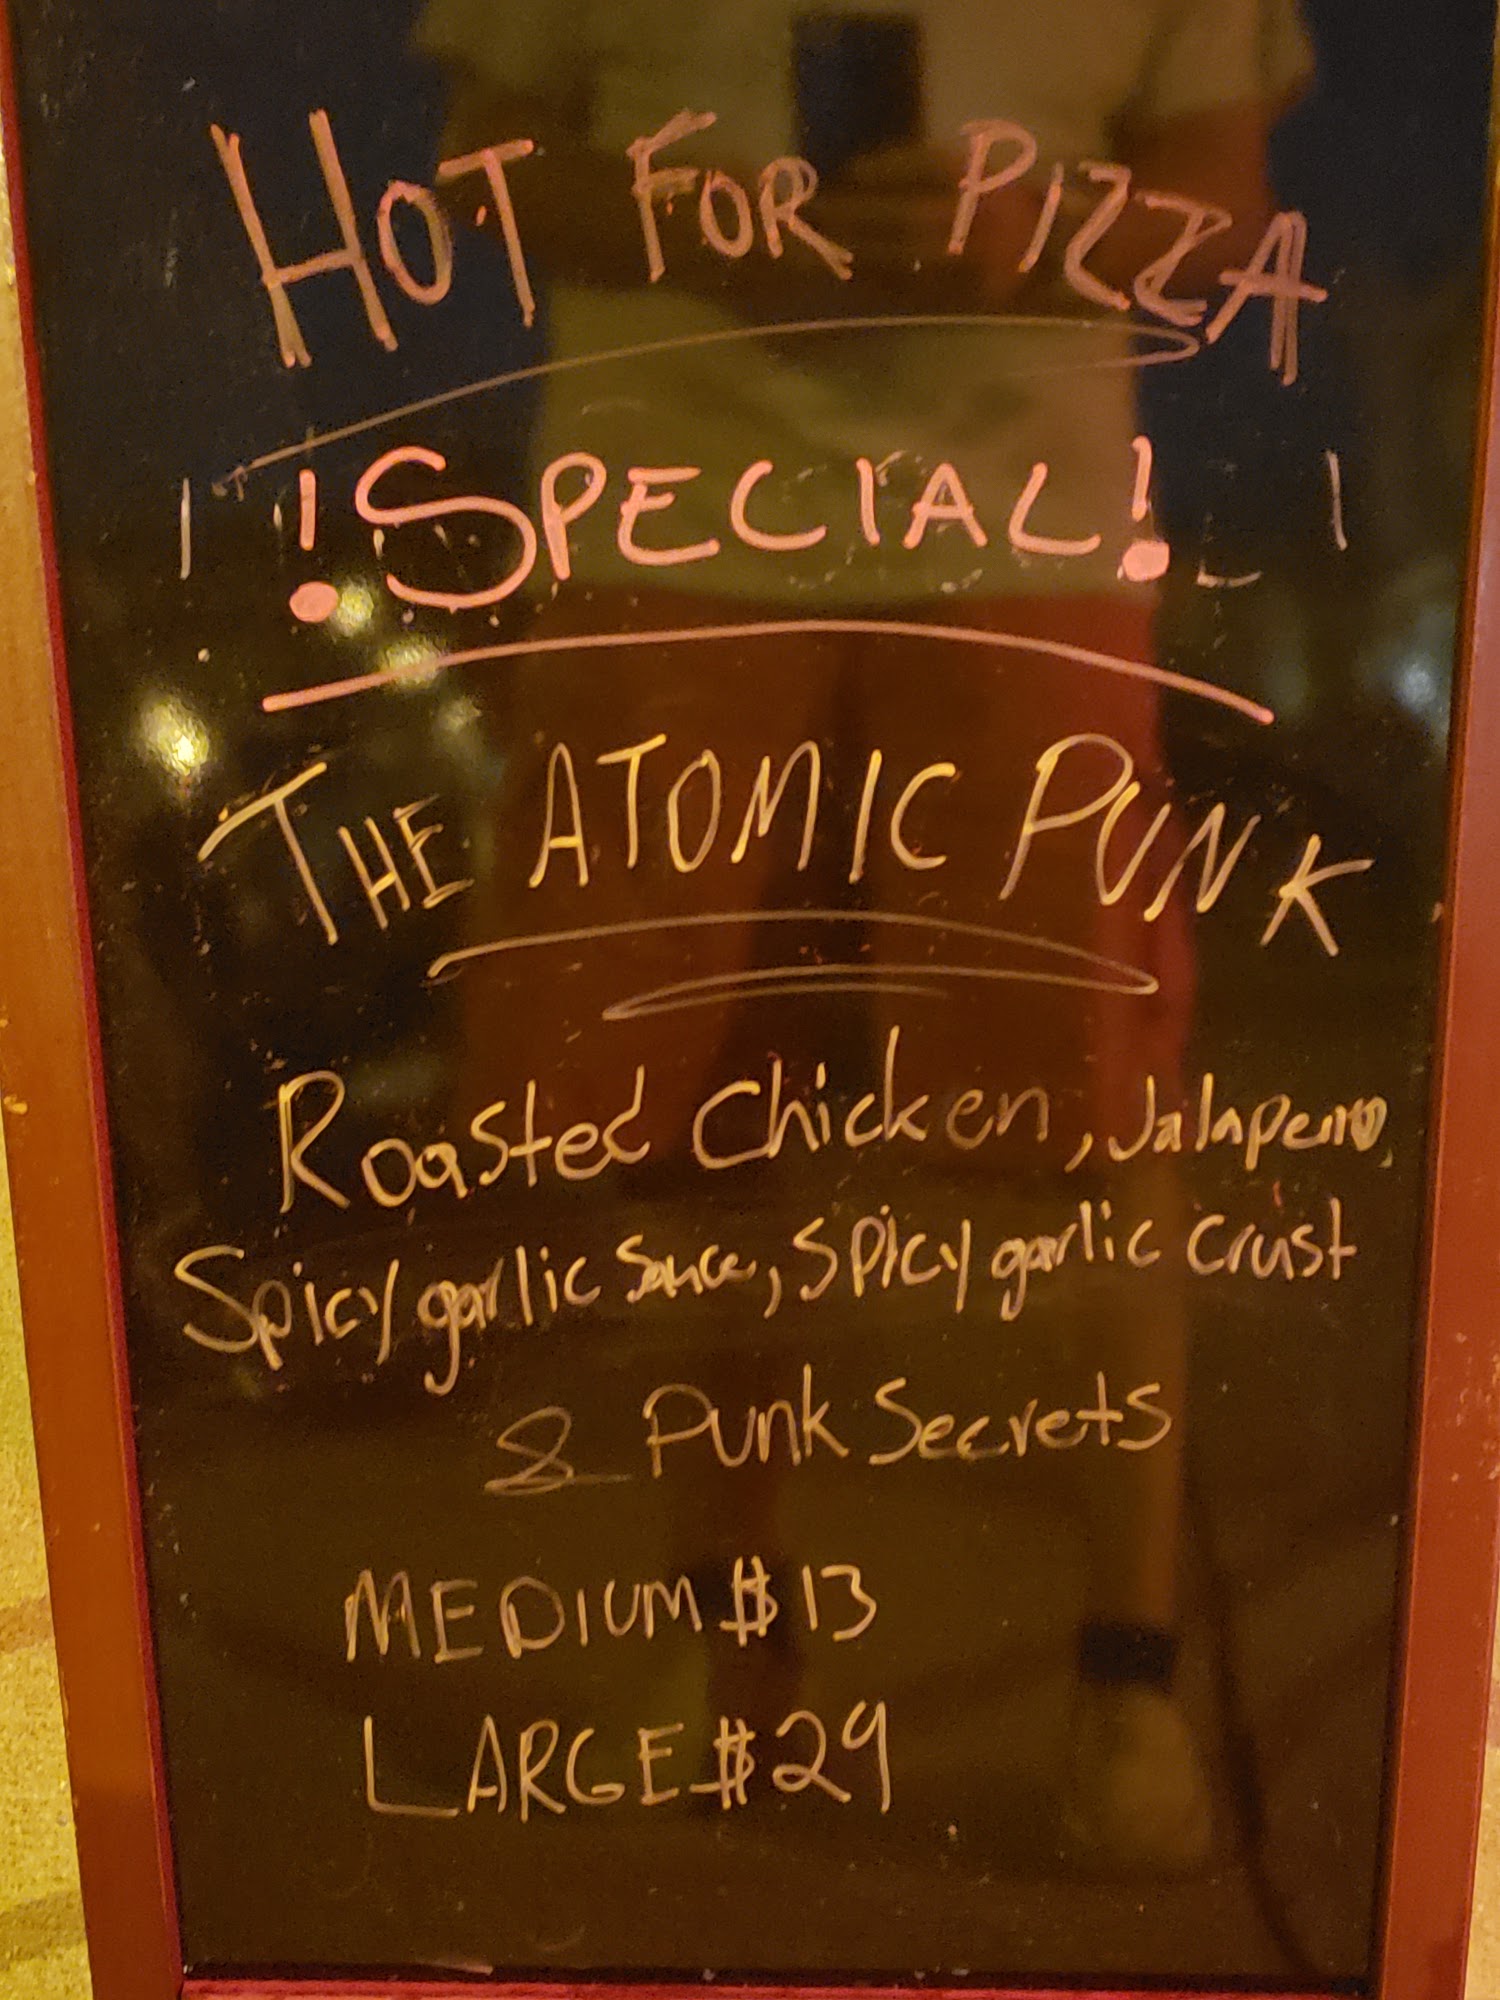 HOT FOR PIZZA
!SPECIAL!
THE ATOMIC PUNK
Roasted Chicken, Jalapeno,
Spicy garlic Sauce, Spicy garlic Crust
& Punk Secrets
MEDIUM $13
LARGE $29